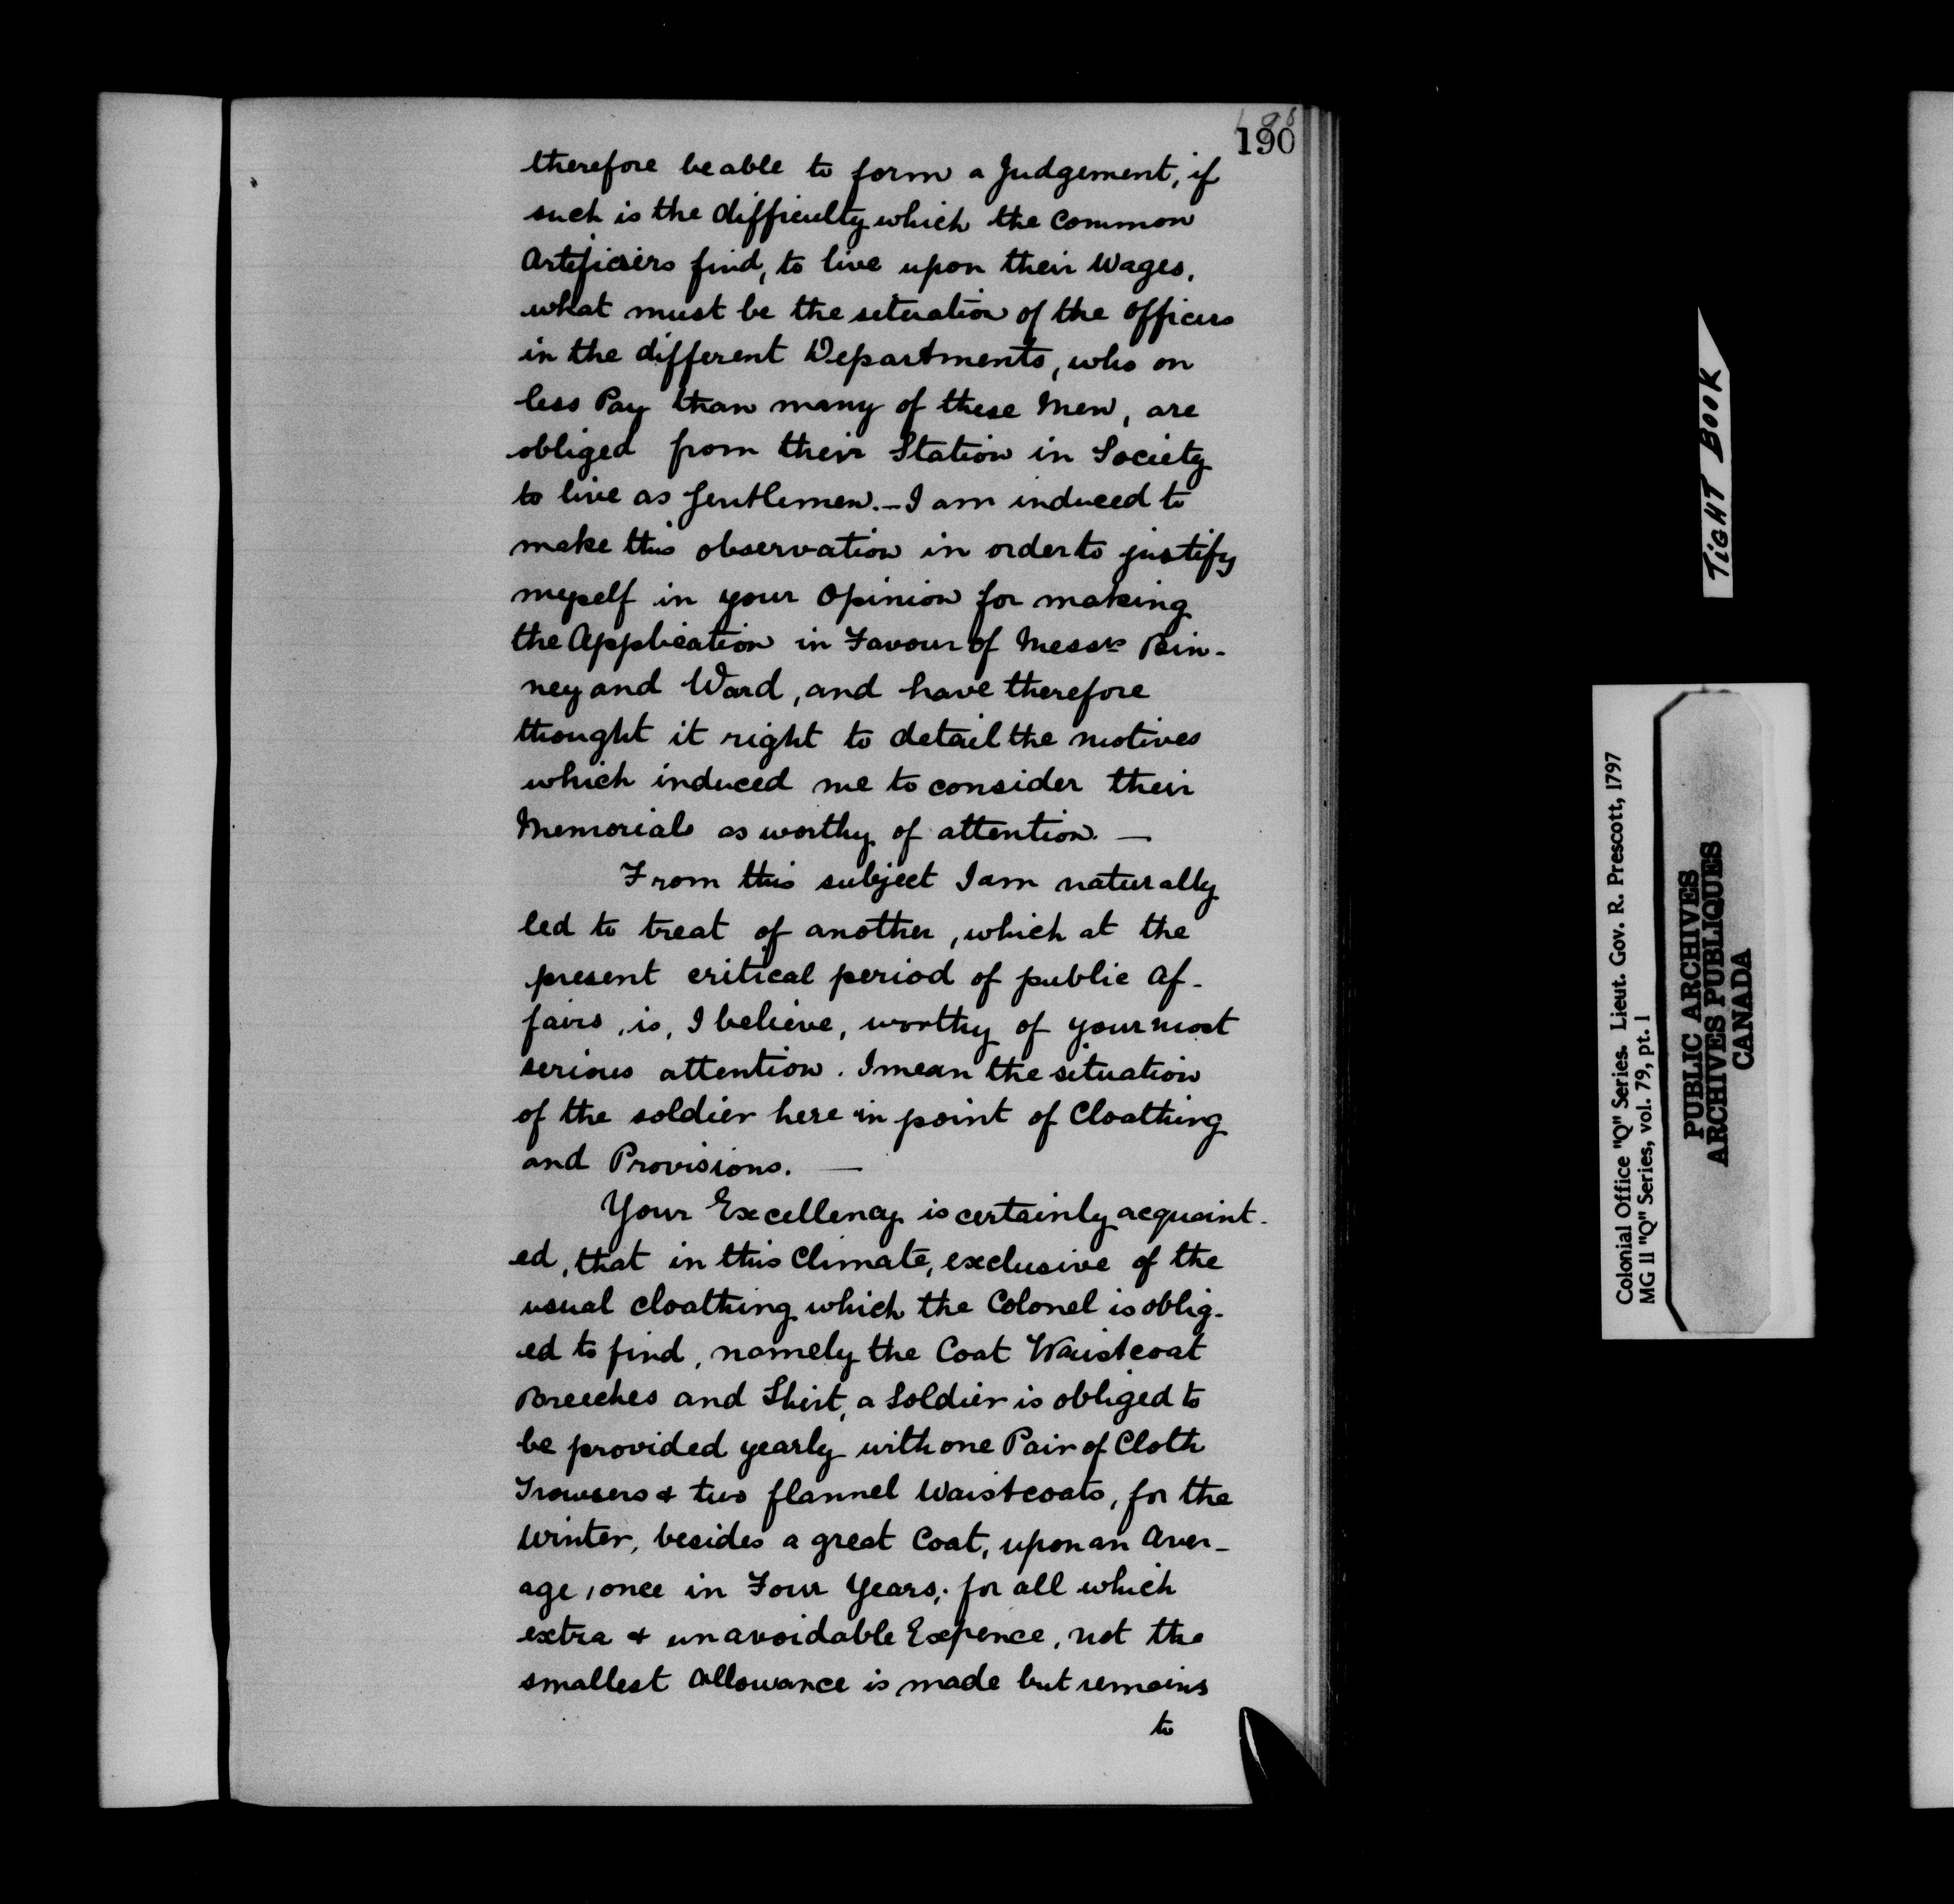 190
therefore be able to form a Judgement, if
such is the difficulty which the Common
Artificiers find, to live upon their Wages,
what must be the situation of the officers
in the different Departments, who on
less Pay than many of these Men, are
obliged from their Station in Society
to live as Gentlemen. — I am induced to
make this observation in order to justify
myself in your Opinion for making
the Application in Favour of Messrs Bin-
ney and Ward, and have therefore
thought it right to detail the motives
which induced me to consider their
Memorials as worthy of attention. —
From this subject I am naturally
led to treat of another, which at the
present critical period of public Af-
fairs, is, I believe, worthy of your most
serious attention. I mean the situation
of the soldier here in point of Cloathing
and Provisions. —
Your Excellency is certainly acquaint-
ed, that in this Climate, exclusive of the
usual Cloathing which the Colonel is oblig-
ed to find, namely the Coat Waistcoat
Breeches and Shirt, a Soldier is obliged to
be provided yearly with one Pair of Cloth
Trowsers & two flannel Waistcoats, for the
Winter, besides a great Coat, upon an Aver-
age, once in Four Years; for all which
extra & unavoidable Expence, not the
smallest Allowance is made but remains
to
TIGHT BOOK
Colonial Office "Q" Series. Lieut. Gov. R. Prescott, 1797
MG 11 "Q" Series, vol. 79, pt. 1
PUBLIC ARCHIVES
ARCHIVES PUBLIQUES
CANADA